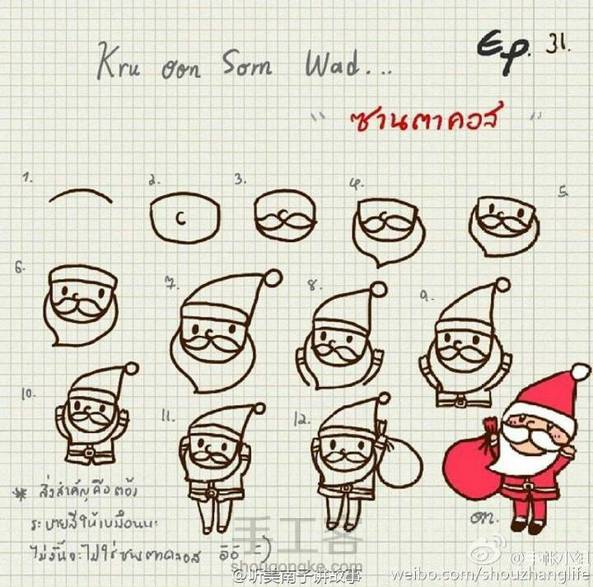 Kru oon Som Wad...
Ep. 31.
" ซานตาคอส "
1.
2.
3.
4.
5.
6.
7.
8.
9.
10.
11.
12.
* สิ่งสำคัญคือต้อง
ระบายสีให้เหมือนนะ
ไม่งั้นจะไม่ใช่ซานตาคอส อิอิ :-)
on.
手工客
shougongke.com
@听美南子讲故事
@手帐小组
weibo.com/shouzhanglife